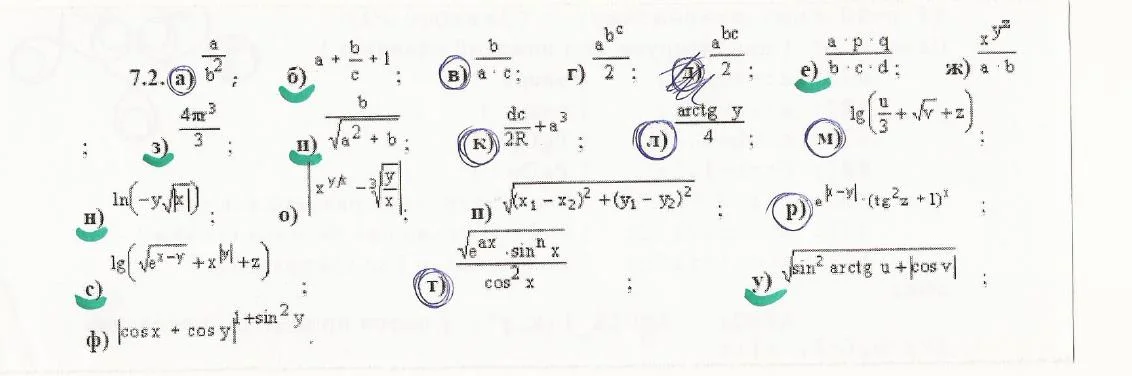 7.2. а) a/b²; б) a + b/c + 1; в) b/(a · c); г) a^(b^c)/2; д) a^(bc)/2; е) (a · p · q)/(b · c · d); ж) x^(y^z)/(a · b)
; з) 4πr³/3; и) b/√(a² + b); к) dc/2R + a³; л) arctg y/4; м) lg(u/3 + √v + z);
н) ln(−y√|x|); о) |x^(y/x) − ∛(y/x)|; п) √((x₁ − x₂)² + (y₁ − y₂)²); р) e^|x−y| · (tg²z + 1)^x;
с) lg(√(e^(x−y)) + x^|y| + z); т) √(e^(ax) · sinⁿ x)/cos² x; у) √(sin² arctg u + |cos v|);
ф) |cos x + cos y|^(1+sin² y).